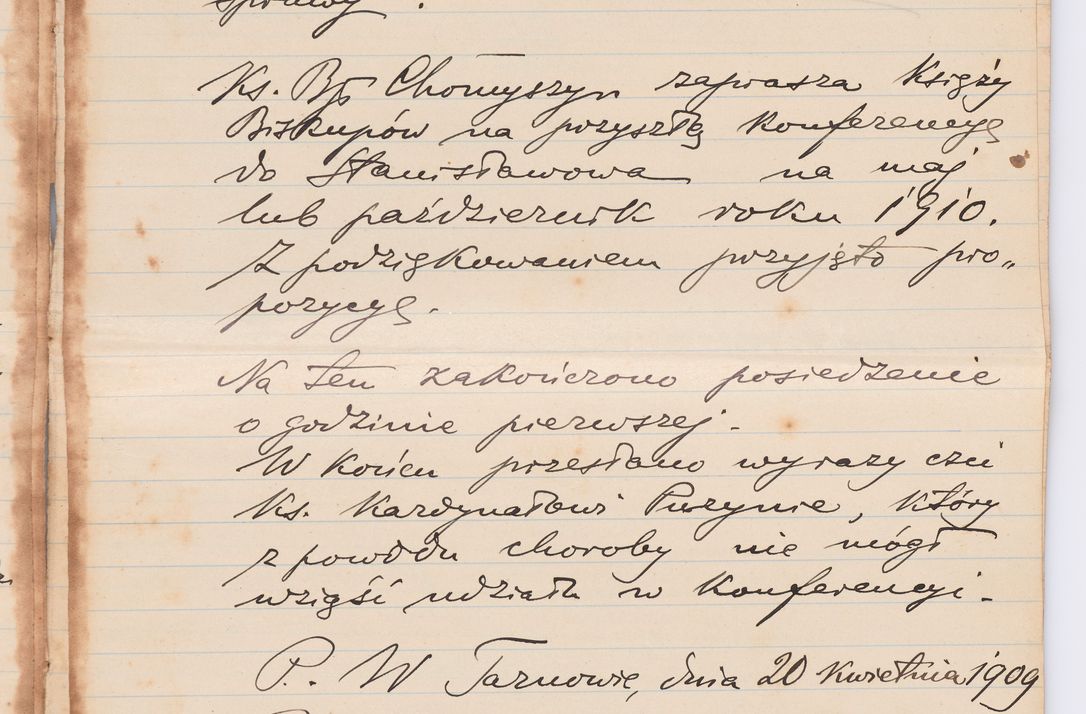 sprawy.
Ks. Bp Chomyszyn zaprasza Księży
Biskupów na przyszłą konferencyę
do Stanisławowa na maj
lub październik roku 1910.
Z podziękowaniem przyjęto pro„
pozycyę.
Na tem zakończono posiedzenie
o godzinie pierwszej.
W końcu przesłano wyrazy czci
Ks. Kardynałowi Puzynie, który
z powodu choroby nie mógł
wziąść udziału w konferencyi.
P. W Tarnowie, dnia 20 kwietnia 1909